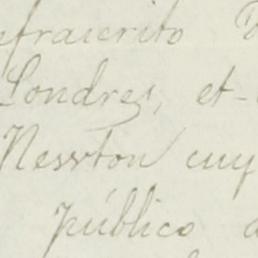 efrascrito
Londres, et
Nesvton cuy
público a